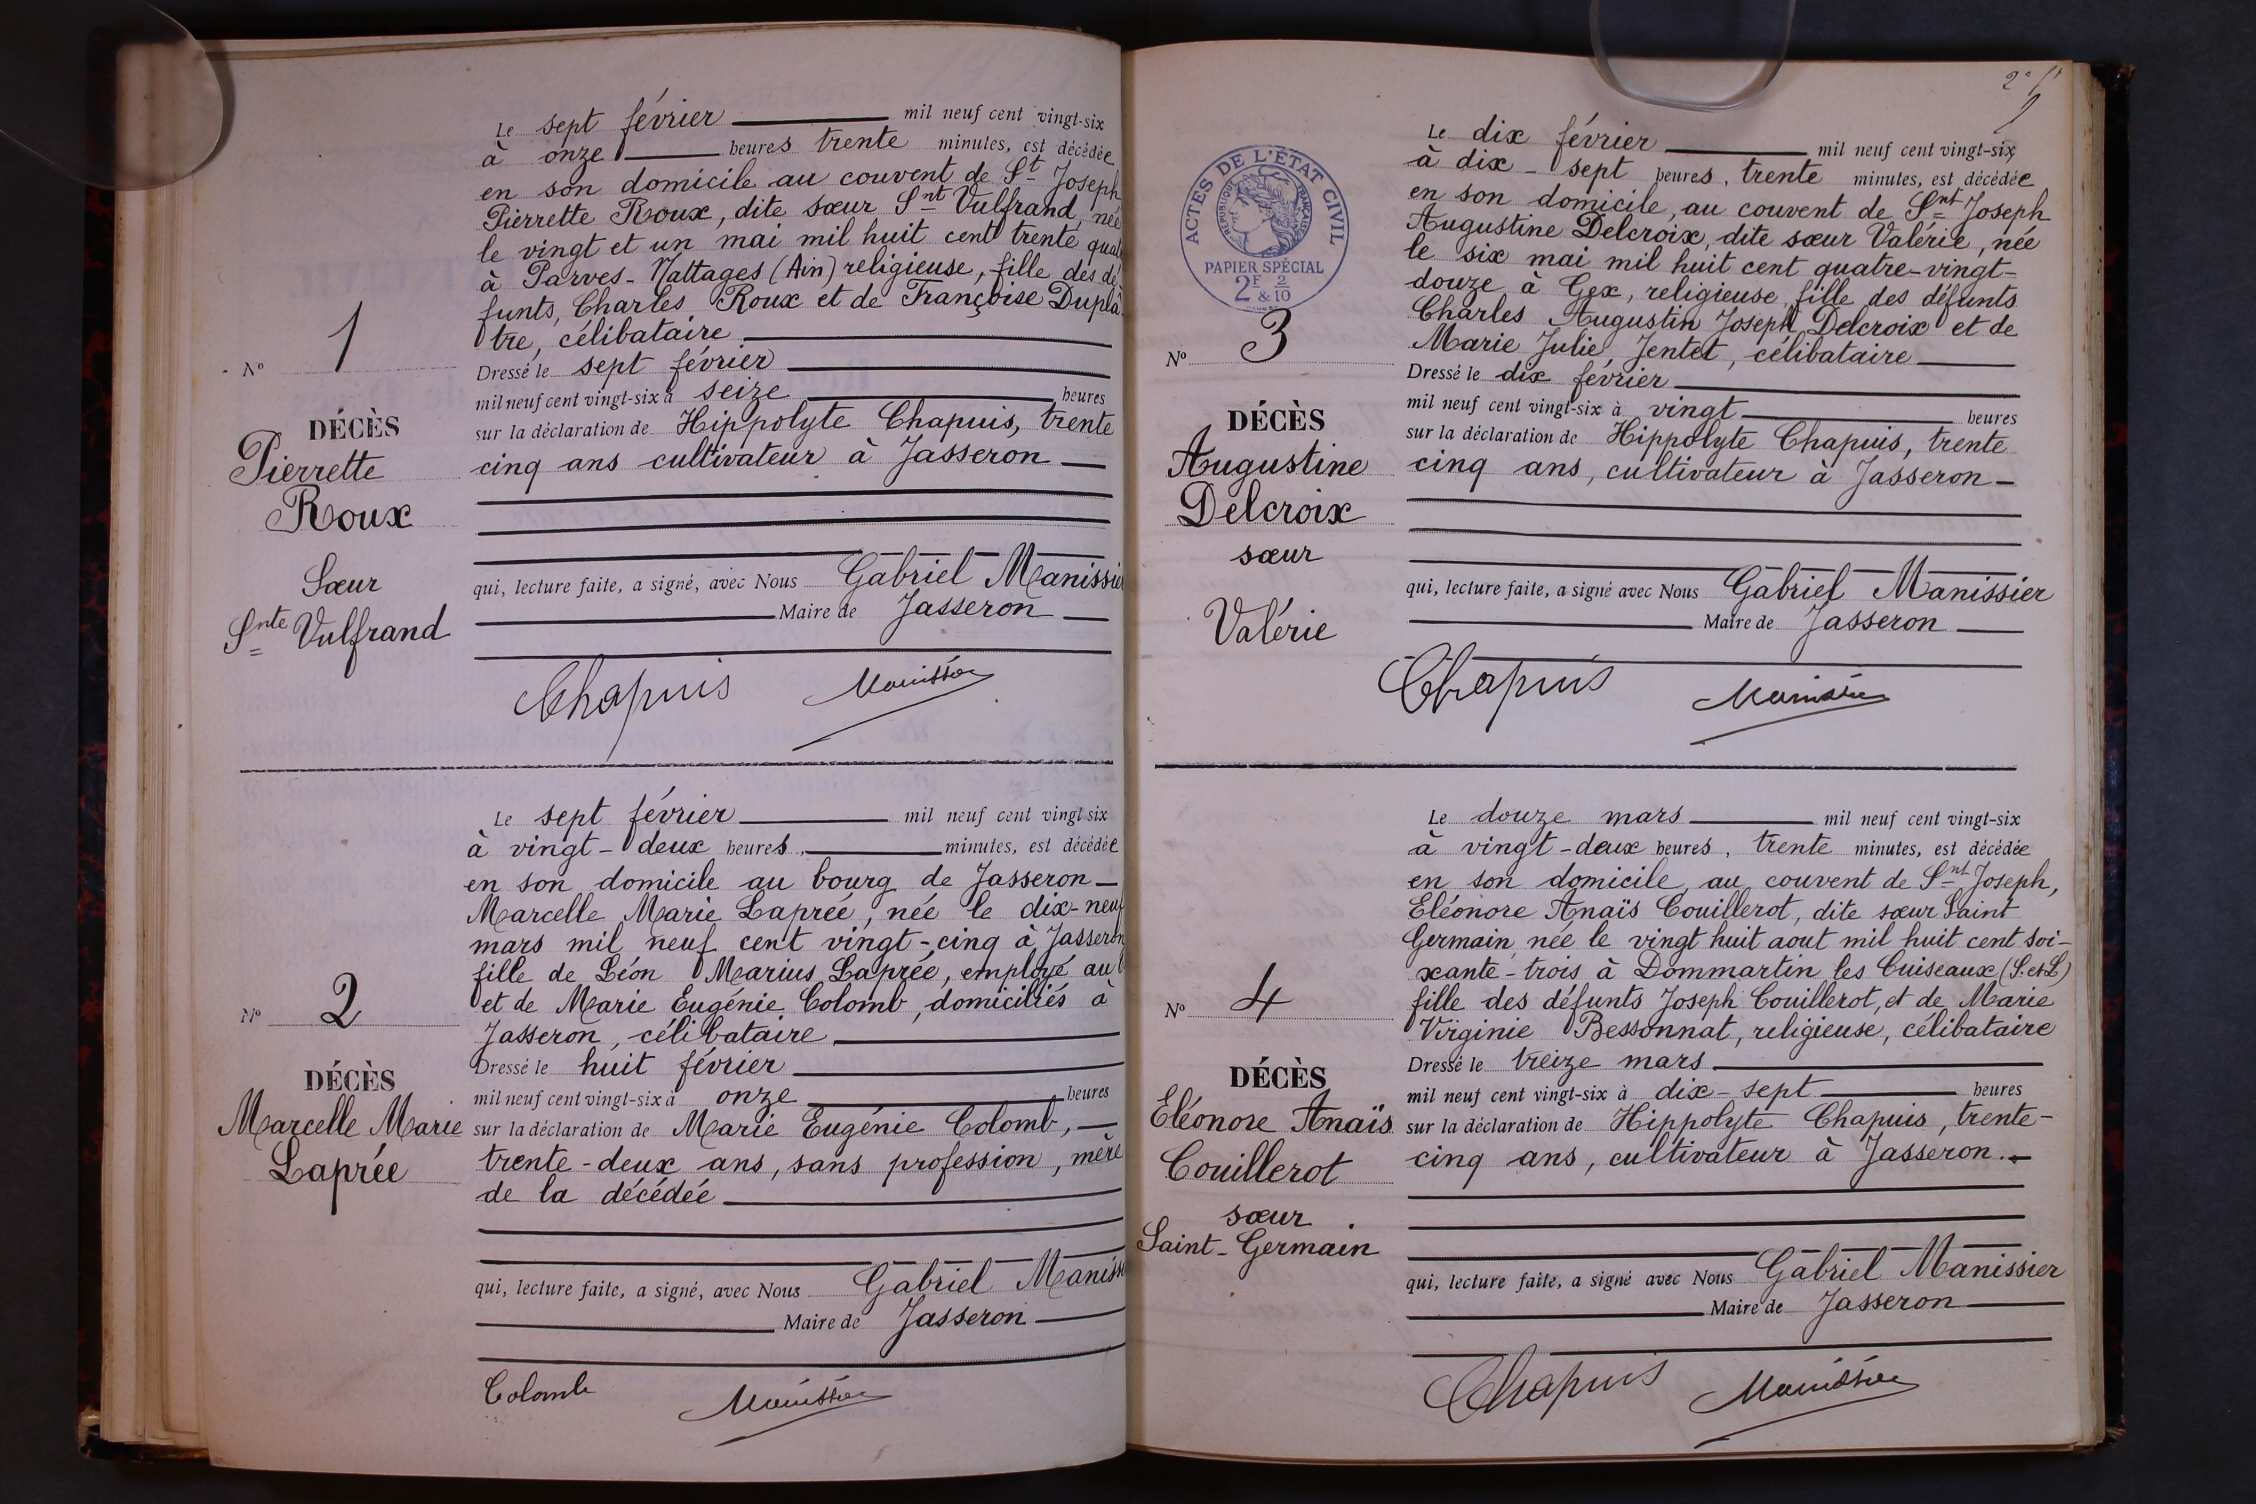 Le sept février mil neuf cent vingt-six
à onze heures trente minutes, est décédée
en son domicile au couvent de St Joseph
Pierrette Roux, dite sœur Snt Vulfrand, née
le vingt et un mai mil huit cent trente quat
à Parves-Nattages (Ain) religieuse, fille des dé
funts, Charles Roux et de Françoise Duplâ
tre, célibataire
Nº 1
Dressé le sept février
mil neuf cent vingt-six à seize heures
DÉCÈS
sur la déclaration de Hippolyte Chapuis, trente
Pierrette
cinq ans cultivateur à Jasseron
Roux
Sœur
qui, lecture faite, a signé, avec Nous Gabriel Manissier
Snte Vulfrand
Maire de Jasseron
Chapuis Manissier
Le sept février mil neuf cent vingt six
à vingt-deux heures, minutes, est décédée
en son domicile au bourg de Jasseron
Marcelle Marie Laprée, née le dix-neuf
mars mil neuf cent vingt-cinq à Jasseron
fille de Léon Marius Laprée, employé au
et de Marie Eugénie Colomb, domiciliés à
Nº 2
Jasseron, célibataire
Dressé le huit février
DÉCÈS
mil neuf cent vingt-six à onze heures
Marcelle Marie
sur la déclaration de Marie Eugénie Colomb,
Laprée
trente-deux ans, sans profession, mère
de la décédée
qui, lecture faite, a signé, avec Nous Gabriel Maniss
Maire de Jasseron
Colomb Manissier
Le dix février mil neuf cent vingt-six
à dix-sept heures, trente minutes, est décédée
en son domicile, au couvent de Snt Joseph
Augustine Delcroix, dite sœur Valérie, née
le six mai mil huit cent quatre-vingt-
douze à Gex, religieuse, fille des défunts
Charles Augustin Joseph Delcroix et de
Marie Julie, Jentet, célibataire
ACTES DE L'ÉTAT CIVIL
RÉPUBLIQUE FRANÇAISE
PAPIER SPÉCIAL
2F & 2/10
Nº 3
Dressé le dix février
mil neuf cent vingt-six à vingt heures
DÉCÈS
sur la déclaration de Hippolyte Chapuis, trente
Augustine
cinq ans, cultivateur à Jasseron
Delcroix
sœur
qui, lecture faite, a signé avec Nous Gabriel Manissier
Valérie
Maire de Jasseron
Chapuis Manissier
Le douze mars mil neuf cent vingt-six
à vingt-deux heures, trente minutes, est décédée
en son domicile, au couvent de Snt Joseph,
Eléonore Anaïs Couillerot, dite sœur Saint
Germain, née le vingt huit aout mil huit cent soi-
xante-trois à Dommartin les Cuiseaux (S. et L)
fille des défunts Joseph Couillerot, et de Marie
Virginie Bessonnat, religieuse, célibataire
Nº 4
Dressé le treize mars
DÉCÈS
mil neuf cent vingt-six à dix-sept heures
Eléonore Anaïs
sur la déclaration de Hippolyte Chapuis, trente-
Couillerot
cinq ans, cultivateur à Jasseron.
sœur
Saint-Germain
qui, lecture faite, a signé avec Nous Gabriel Manissier
Maire de Jasseron
Chapuis Manissier